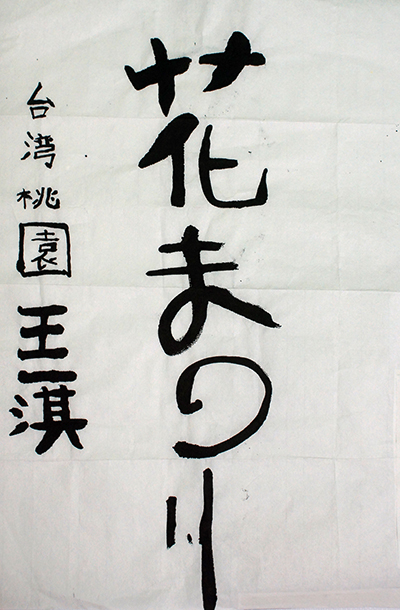 花まのり
台湾桃園 王一淇